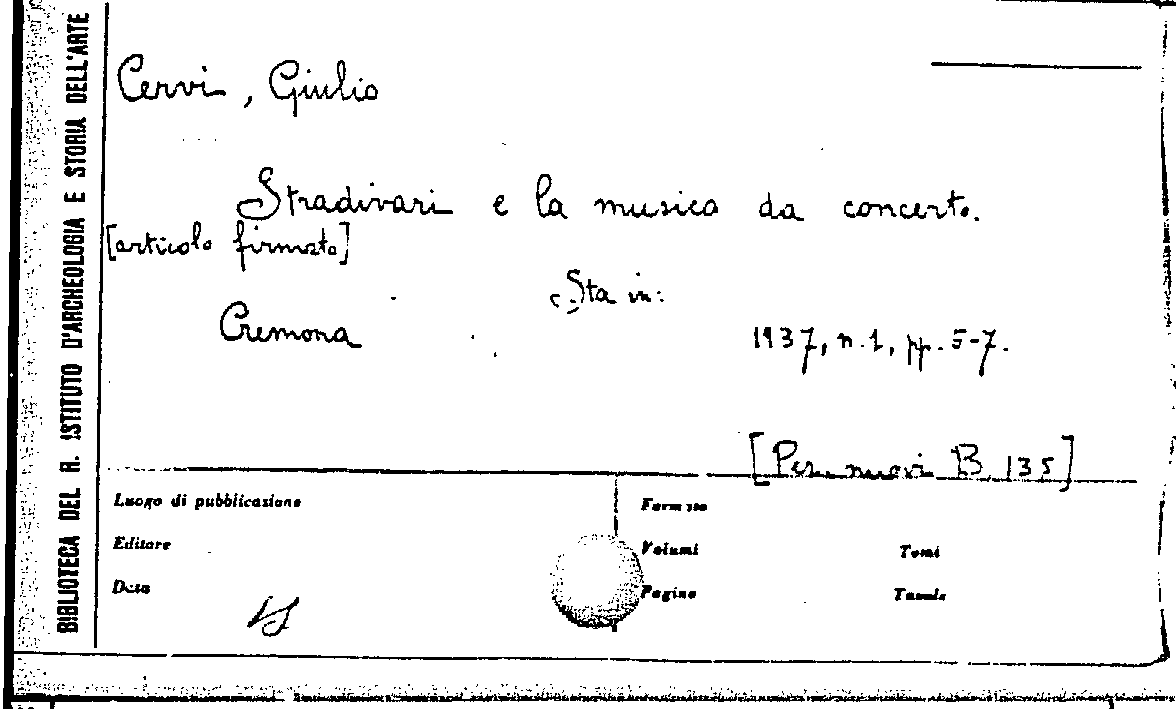 BIBLIOTECA DEL R. ISTITUTO D'ARCHEOLOGIA E STORIA DELL'ARTE
Cervi, Giulio
Stradivari e la musica da concerto.
[articolo firmato]
Sta in:
Cremona
1937, n. 1, pp. 5-7.
[Per. nuovi B 135]
Luogo di pubblicazione
Formato
Editore
Volumi
Tomi
Data
Pagine
Tavole